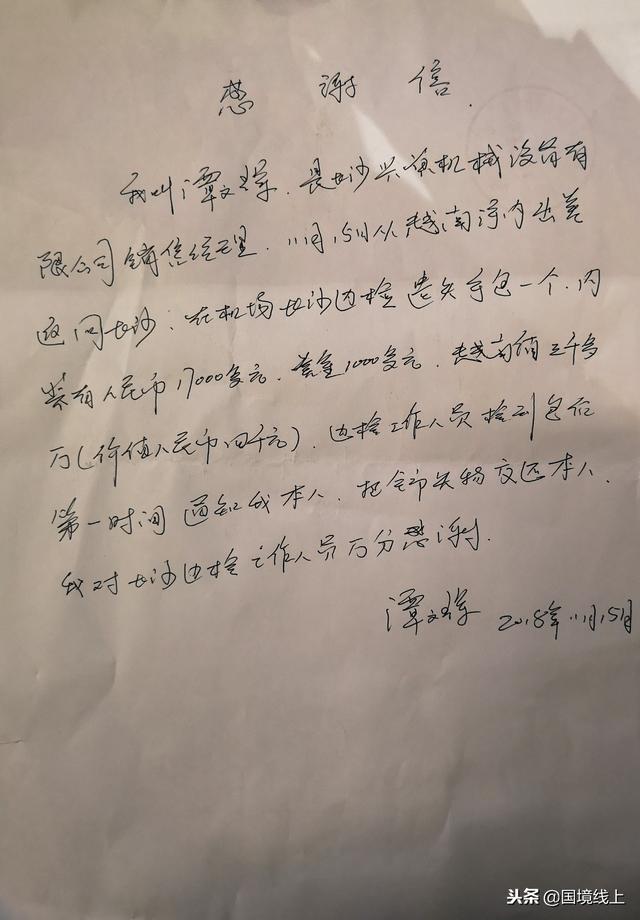 感谢信.
我叫谭文. 是长沙兴机械设备有
限公司销售经理. 11月15日从越南河内出差
返回长沙. 在机场长沙边检遗失手包一个. 内
装有人民币17000多元. 美金1000多元. 越南币三千多
万(价值人民币四千元). 边检工作人员捡到包后
第一时间通知我本人. 把全部失物交还本人.
我对长沙边检工作人员万分感谢.
谭文 2018年11月15日
头条@国境线上